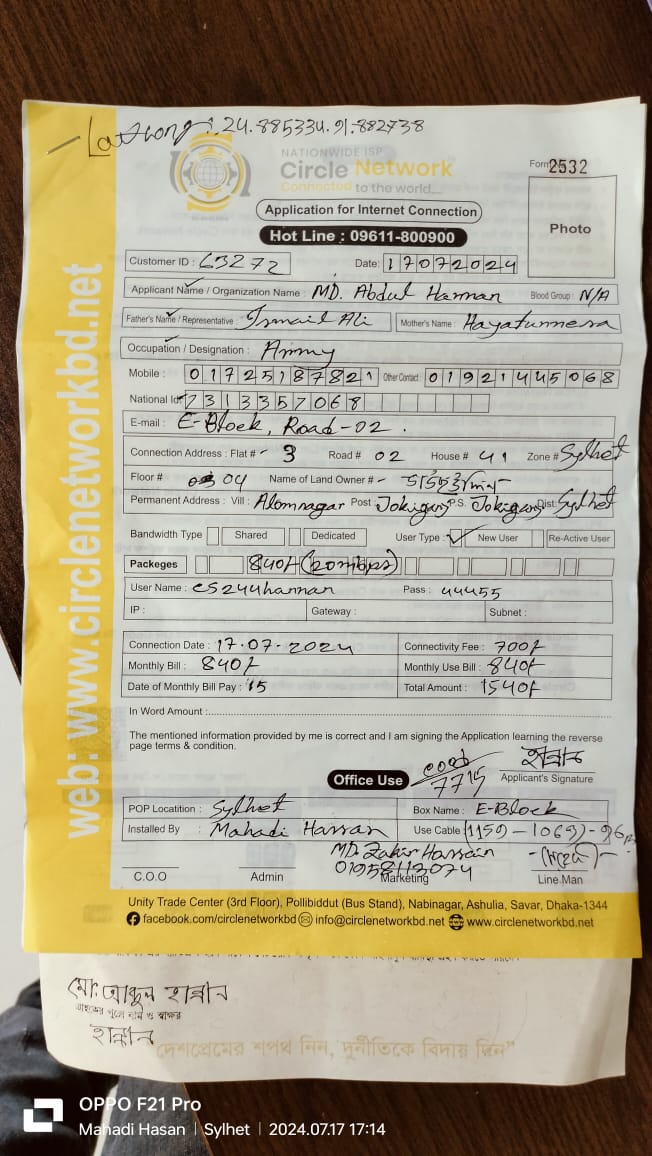 Lat Long: 24.885334.91.882738
NATIONWIDE ISP
Circle Network
Connected to the world...
Form 2532
Application for Internet Connection
Photo
Hot Line : 09611-800900
Customer ID : 63272 Date: 17072024
Applicant Name / Organization Name : MD. Abdul Hannan Blood Group : N/A
Father's Name / Representative : Ismail Ali Mother's Name : Hayatunnesa
Occupation / Designation : Army
Mobile : 01725187821 Other Contact : 01921445068
National Id: 7313357068
E-mail : E-Block, Road-02.
Connection Address : Flat # - 3 Road # 02 House # 41 Zone # Sylhet
Floor # 04 Name of Land Owner # -
Permanent Address : Vill : Alomnagar Post : Jokigonj P.S. Jokigonj Dist: Sylhet
Bandwidth Type Shared Dedicated User Type : New User Re-Active User
Packeges 840/-(20mbps)
User Name : cs244hannan Pass : 44455
IP : Gateway : Subnet :
Connection Date : 17.07.2024 Connectivity Fee : 700/-
Monthly Bill : 840/- Monthly Use Bill : 840/-
Date of Monthly Bill Pay : 15 Total Amount : 1540/-
In Word Amount :
The mentioned information provided by me is correct and I am signing the Application learning the reverse
page terms & condition.
হান্নান
Office Use 7715 Applicant's Signature
POP Locatition : Sylhet Box Name : E-Block
Installed By : Mahadi Hassan Use Cable (1159-1063)-96
MD. Zakir Hossain
01958113074
C.O.O Admin Marketing Line Man
Unity Trade Center (3rd Floor), Pollibiddut (Bus Stand), Nabinagar, Ashulia, Savar, Dhaka-1344
facebook.com/circlenetworkbd info@circlenetworkbd.net www.circlenetworkbd.net
web: www.circlenetworkbd.net
মো: আব্দুল হান্নান
গ্রাহকের পুরো নাম ও স্বাক্ষর
হান্নান
দেশপ্রেমের শপথ নিন, দুর্নীতিকে বিদায় দিন"
OPPO F21 Pro
Mahadi Hasan | Sylhet | 2024.07.17 17:14